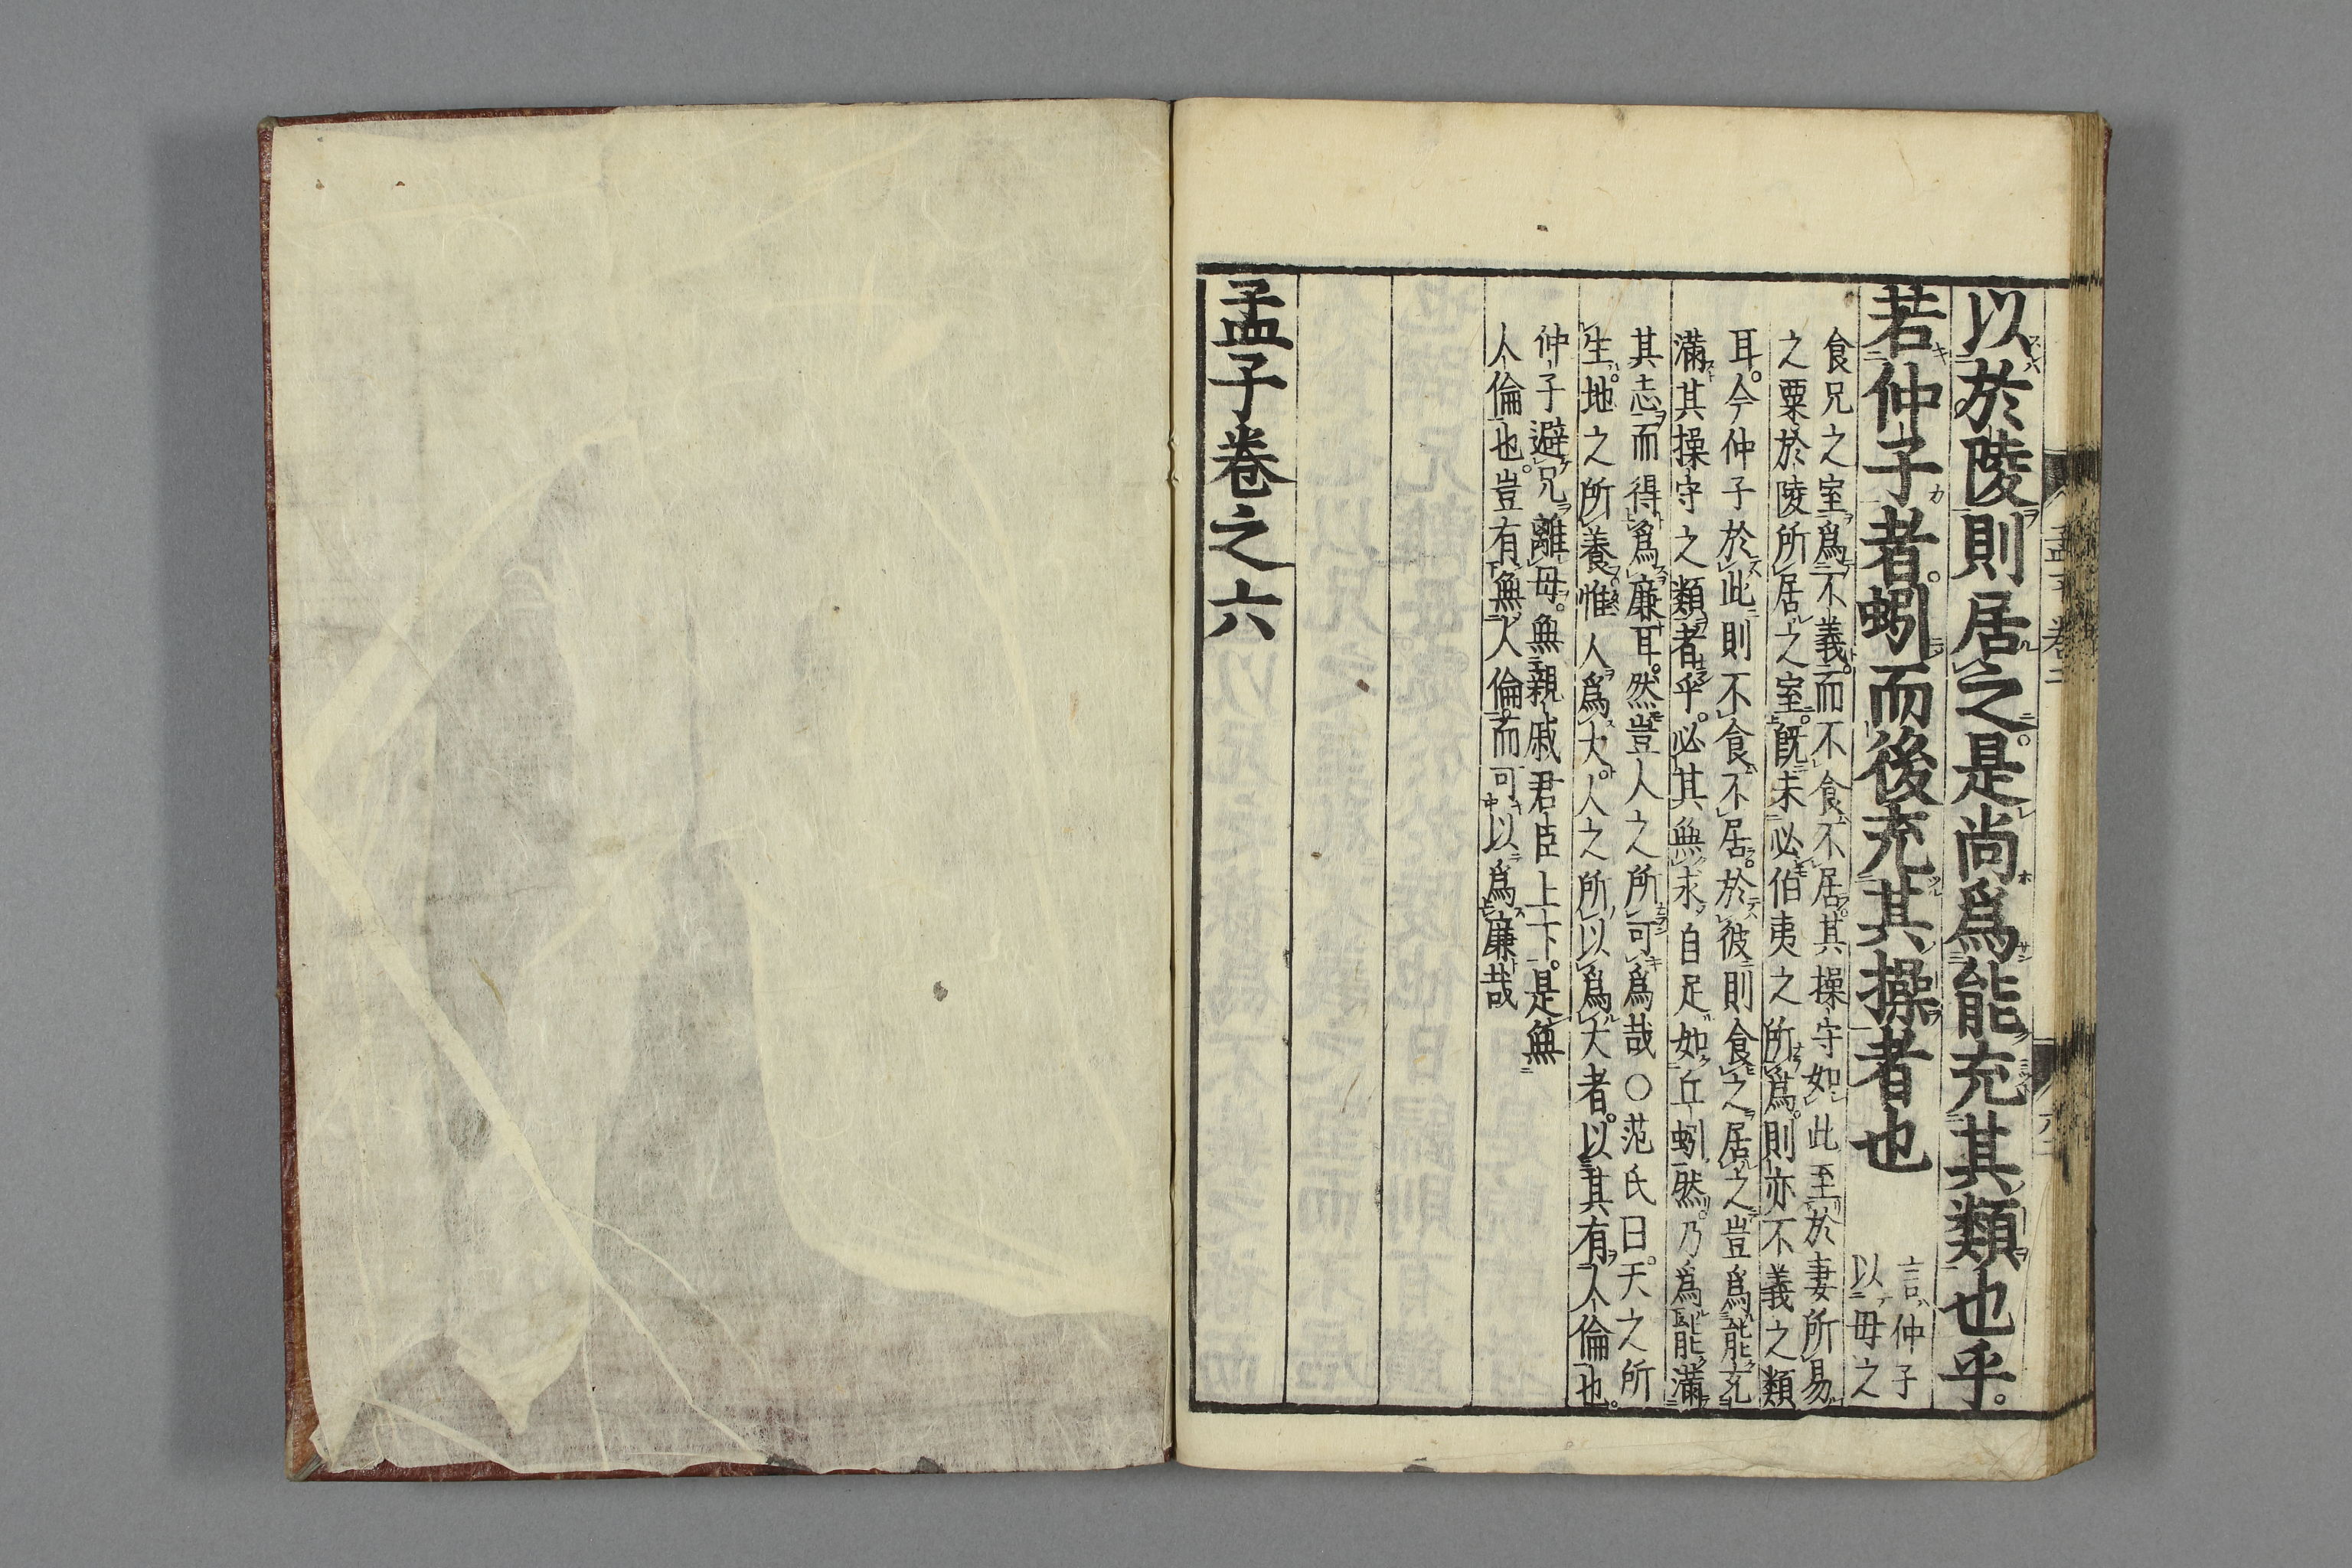 以於陵則居之。是尚爲能充其類也乎。
若仲子者。蚓而後充其操者也
言仲子
以母之
食兄之室爲不義。而不食不居。其操守如此至於妻所易
之粟於陵所居之室。旣未必伯夷之所爲。則亦不義之類
耳。今仲子於此則不食不居。於彼則食之居之豈爲能充
滿其操守之類者乎。必其無求自足如丘蚓然。乃爲能滿
其志而得爲廉耳。然豈人之所可爲哉〇范氏曰。天之所
生。地之所養惟人爲大。人之所以爲大者。以其有人倫也。
仲子避兄離母。無親戚君臣上下。是無
人倫也。豈有無人倫而可以爲廉哉
孟子卷之六